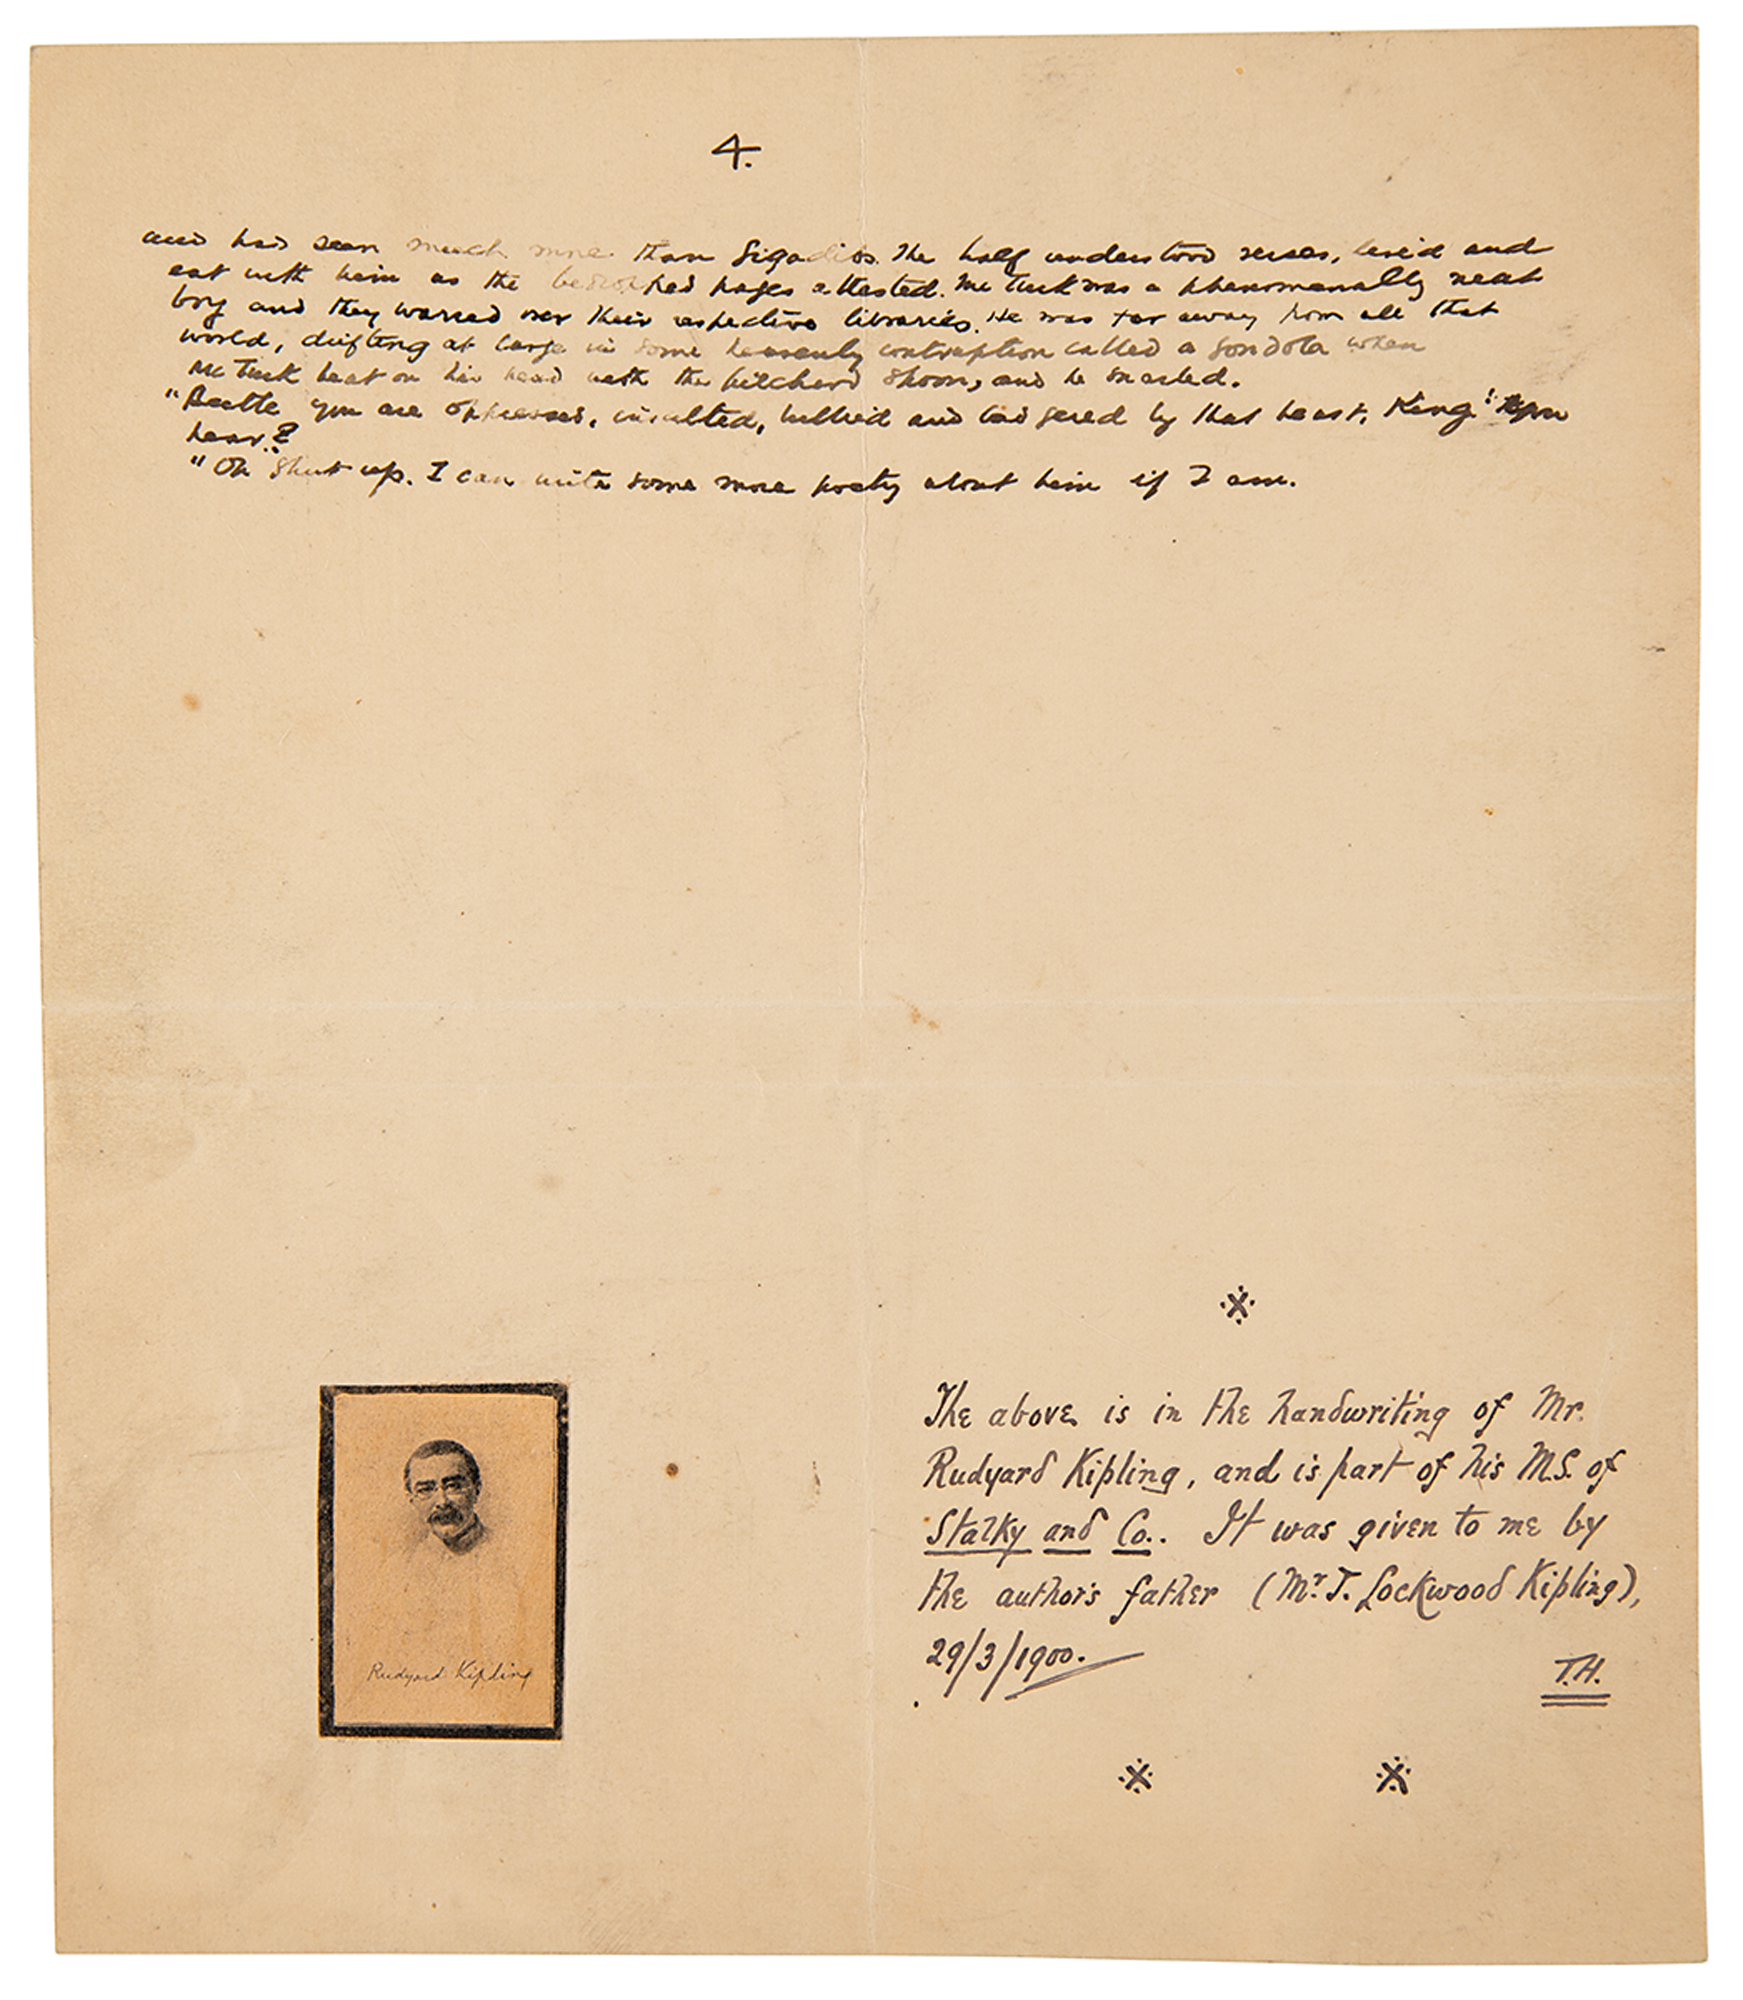 4.
and had seen much more than Gigadibs. The half understood verses, lived and
eat with him as the bedropped pages attested. McTurk was a phenomenally neat
boy and they warred over their respective libraries. He was far away from all that
world, drifting at large in some heavenly contraption called a gondola when
McTurk beat on his head with the pilchard spoon, and he snarled.
"Beetle you are oppressed, insulted, bullied and badgered by that beast, King! you
hear?
"Oh shut up. I can write some more poetry about him if I am.
The above is in the handwriting of Mr.
Rudyard Kipling, and is part of his M.S. of
Stalky and Co.. It was given to me by
the author's father (Mr. J. Lockwood Kipling),
29/3/1900.
T.H.
Rudyard Kipling